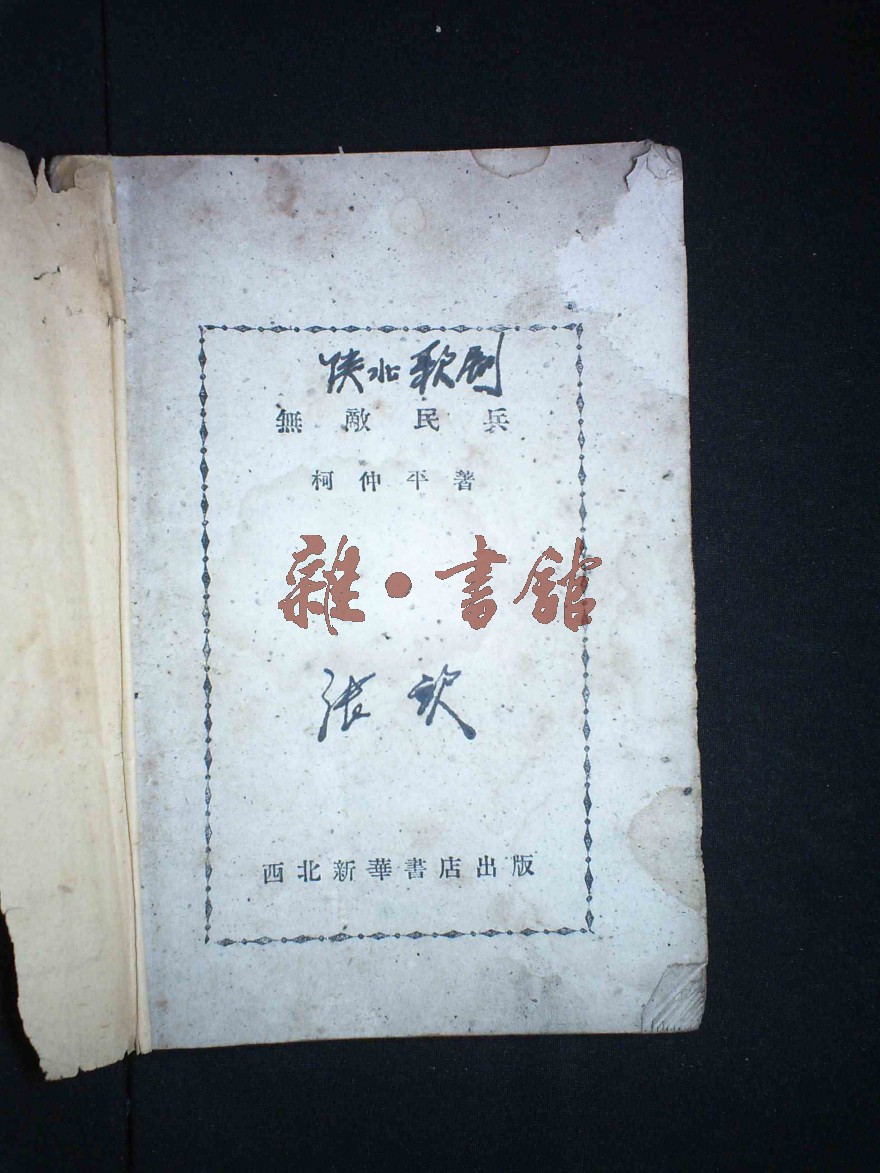 陕北歌剧
無敵民兵
柯仲平著
雜·書館
张欽
西北新華書店出版